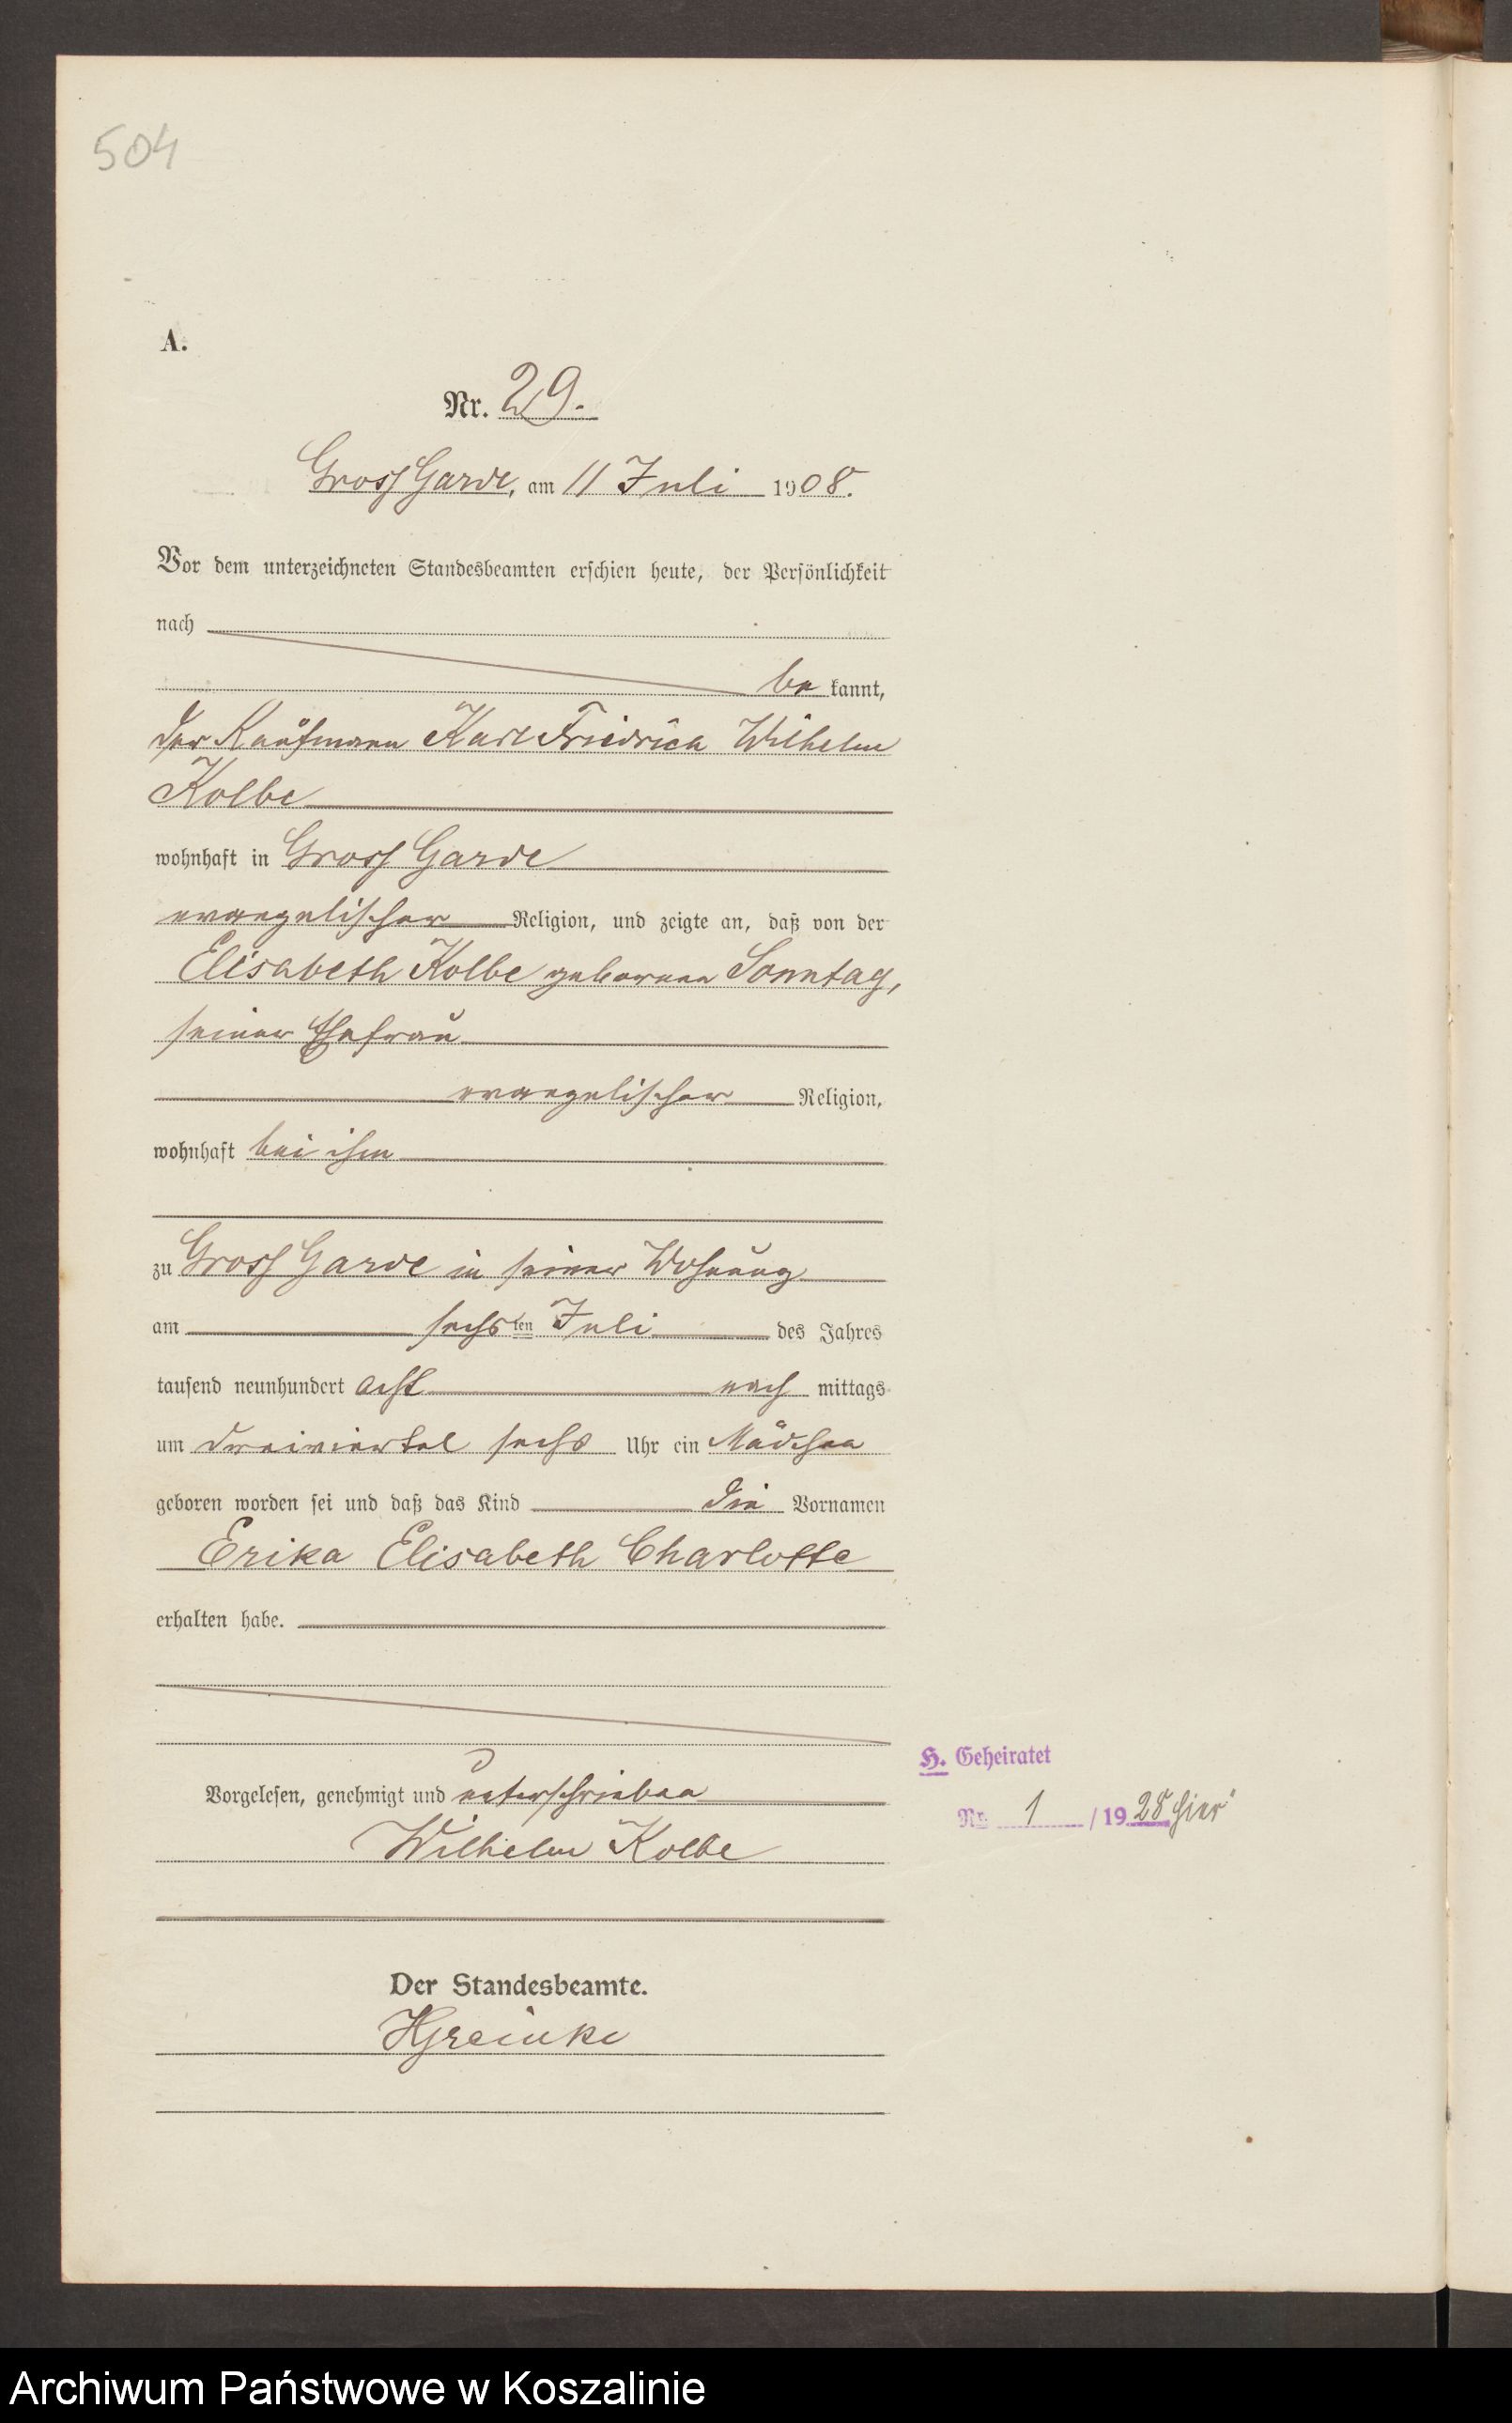 504
A.
Nr. 29.
Gross Garde, am 11 Juli 1908.
Vor dem unterzeichneten Standesbeamten erschien heute, der Persönlichkeit
nach
be kannt,
der Kaufmann Karl Friedrich Wilhelm
Kolbe
wohnhaft in Gross Garde
evangelischer Religion, und zeigte an, daß von der
Elisabeth Kolbe geborenen Sonntag,
seiner Ehefrau
evangelischer Religion,
wohnhaft bei ihm
zu Gross Garde in seiner Wohnung
am sechsten Juli des Jahres
tausend neunhundert acht nach mittags
um dreiviertel sechs Uhr ein Mädchen
geboren worden sei und daß das Kind die Vornamen
Erika Elisabeth Charlotte
erhalten habe.
H. Geheiratet
Vorgelesen, genehmigt und unterschrieben
Nr. 1 /1928 hier
Wilhelm Kolbe
Der Standesbeamte.
Archiwum Państwowe w Koszalinie